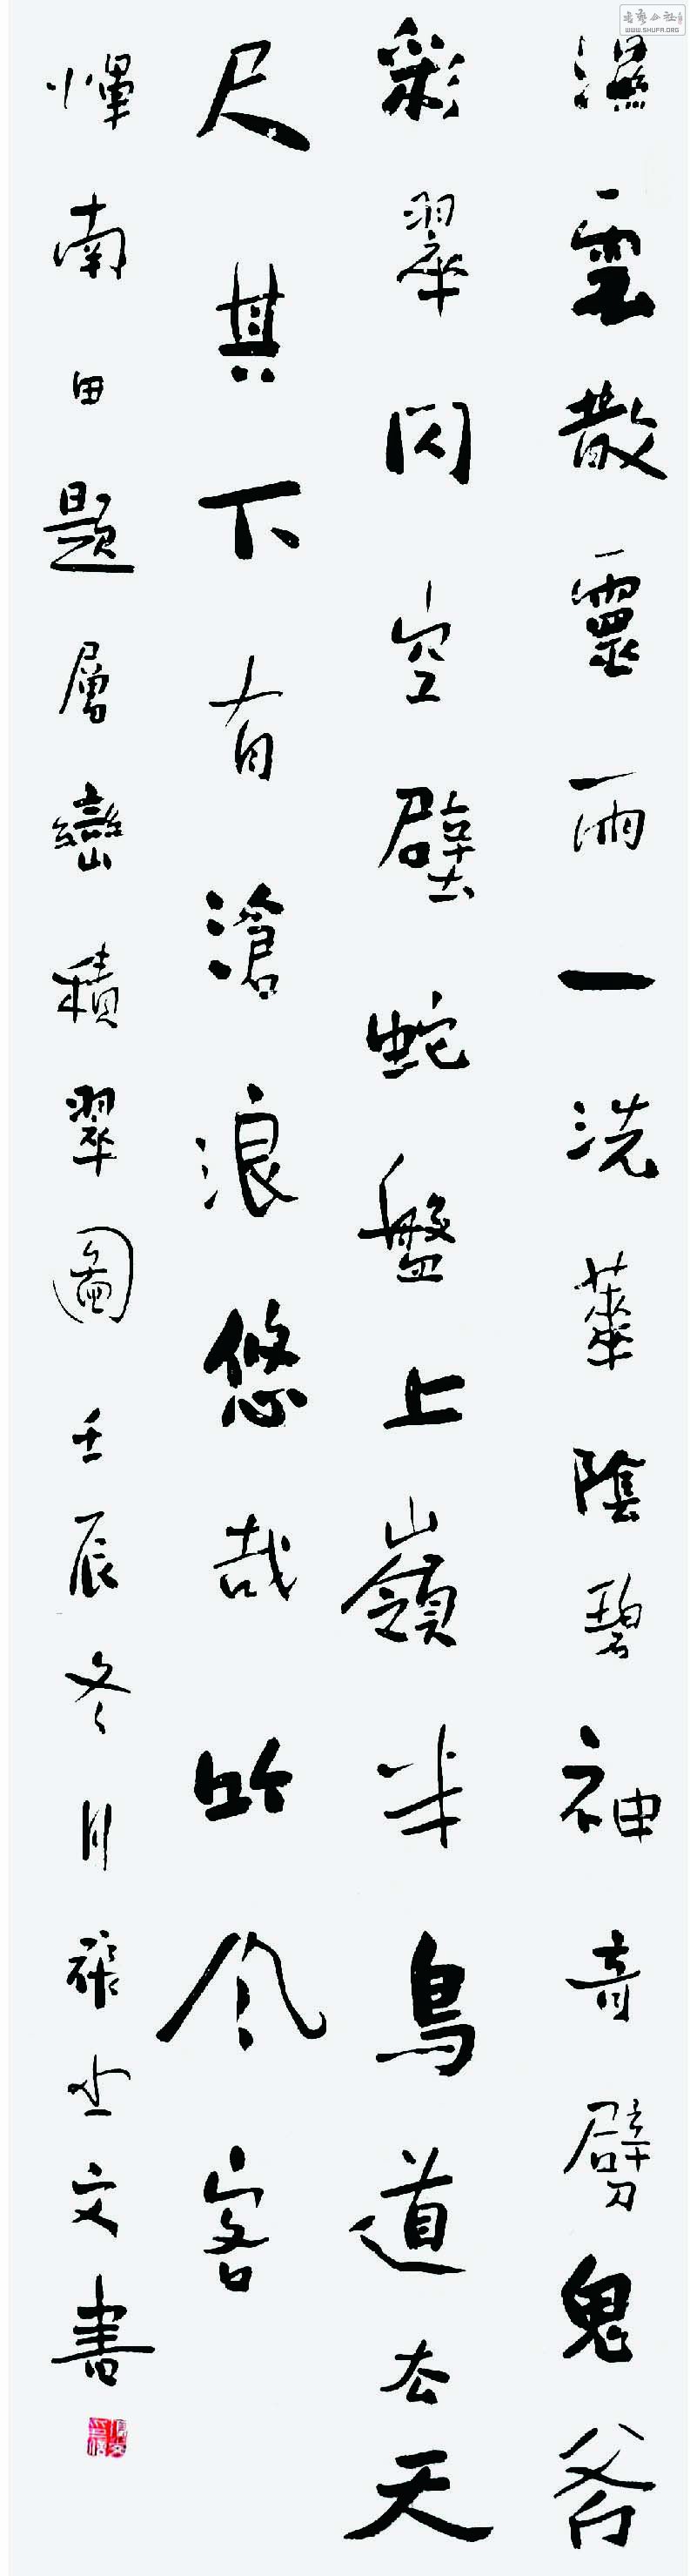 濕雲散靈雨一洗華陰碧袖奇劈鬼斧
彩翠閃空壁蛇盤上嶺半鳥道去天
尺其下有滄浪悠哉吟風客
惲南田題層巒積翠圖壬辰冬月張坐文書
WWW.SHUFA.ORG